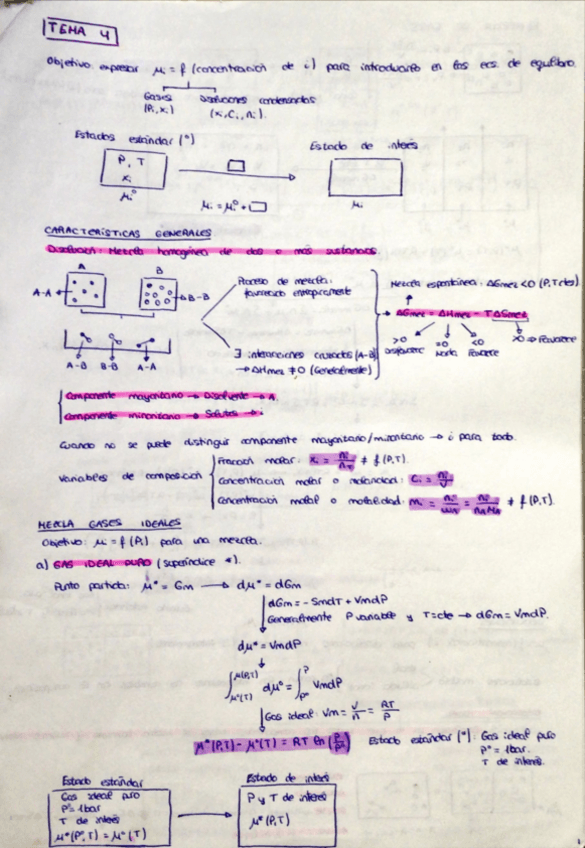 TEMA 4
Objetivo: expresar μi = f (concentración de i) para introducirlo en las ecs. de equilibrio.
Gases (Pi, xi)
Disoluciones condensadas (xi, Ci, mi).
Estados estándar (°)
Estado de interés
P, T
xi
μi°
μi = μi° + □
μi
CARACTERÍSTICAS GENERALES
Disolución: Mezcla homogénea de dos o más sustancias.
A
B
A-A
B-B
A-B B-B A-A
Proceso de mezcla: favorecido entrópicamente
∃ interacciones cruzadas (A-B) → ΔHmez ≠ 0 (Generalmente)
Mezcla espontánea: ΔGmez < 0 (P,T ctes).
ΔGmez = ΔHmez - TΔSmez
>0 Desfavorece
=0 Nada
<0 Favorece
>0 ⇒ Favorece
Componente mayoritario → Disolvente → A.
Componente minoritario → Solutos → i
Cuando no se puede distinguir componente mayoritario/minoritario → i para todo.
Variables de composición
Fracción molar: xi = ni/nT ≠ f (P,T).
Concentración molar o molaridad: Ci = ni/V
Concentración molal o molalidad: mi = ni/wA = ni/nAMA ≠ f (P,T).
MEZCLA GASES IDEALES
Objetivo: μi = f (Pi) para una mezcla.
a) GAS IDEAL PURO (superíndice *).
Punto partida: μ* = Gm → dμ* = dGm
dGm = - SmdT + VmdP
Generalmente P variable y T=cte → dGm = VmdP.
dμ* = VmdP
∫μ°(T)^μ(P,T) dμ* = ∫P°^P VmdP
Gas ideal: Vm = V/n = RT/P
μ*(P,T) - μ°(T) = RT ln (P/P°)
Estado estándar (°): Gas ideal puro
P° = 1bar.
T de interés.
Estado estándar
Gas ideal puro
P° = 1bar
T de interés
μ*(P°,T) = μ°(T)
Estado de interés
P y T de interés
μ*(P,T)